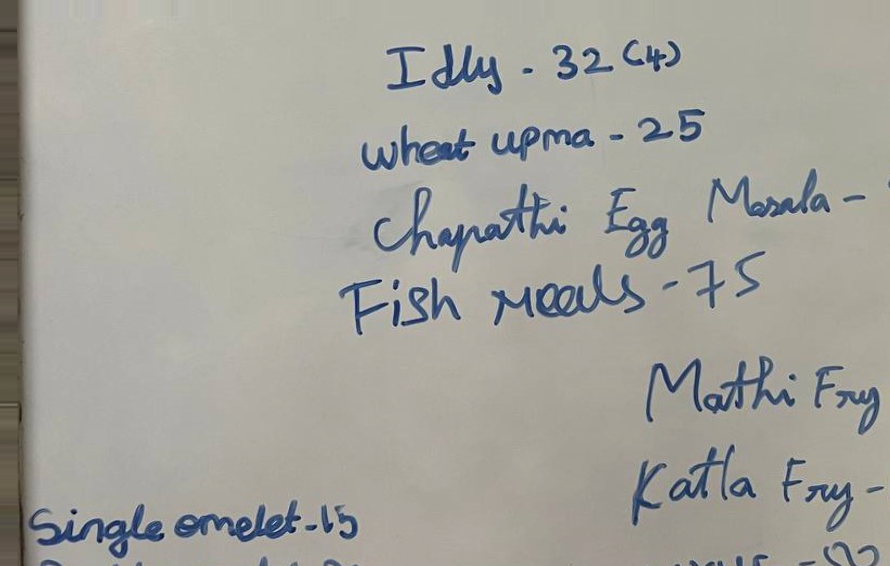 Idly - 32 (4)
wheat upma - 25
Chapathi Egg Masala -
Fish meals - 75
Mathi Fry
Katla Fry -
Single omelet - 15